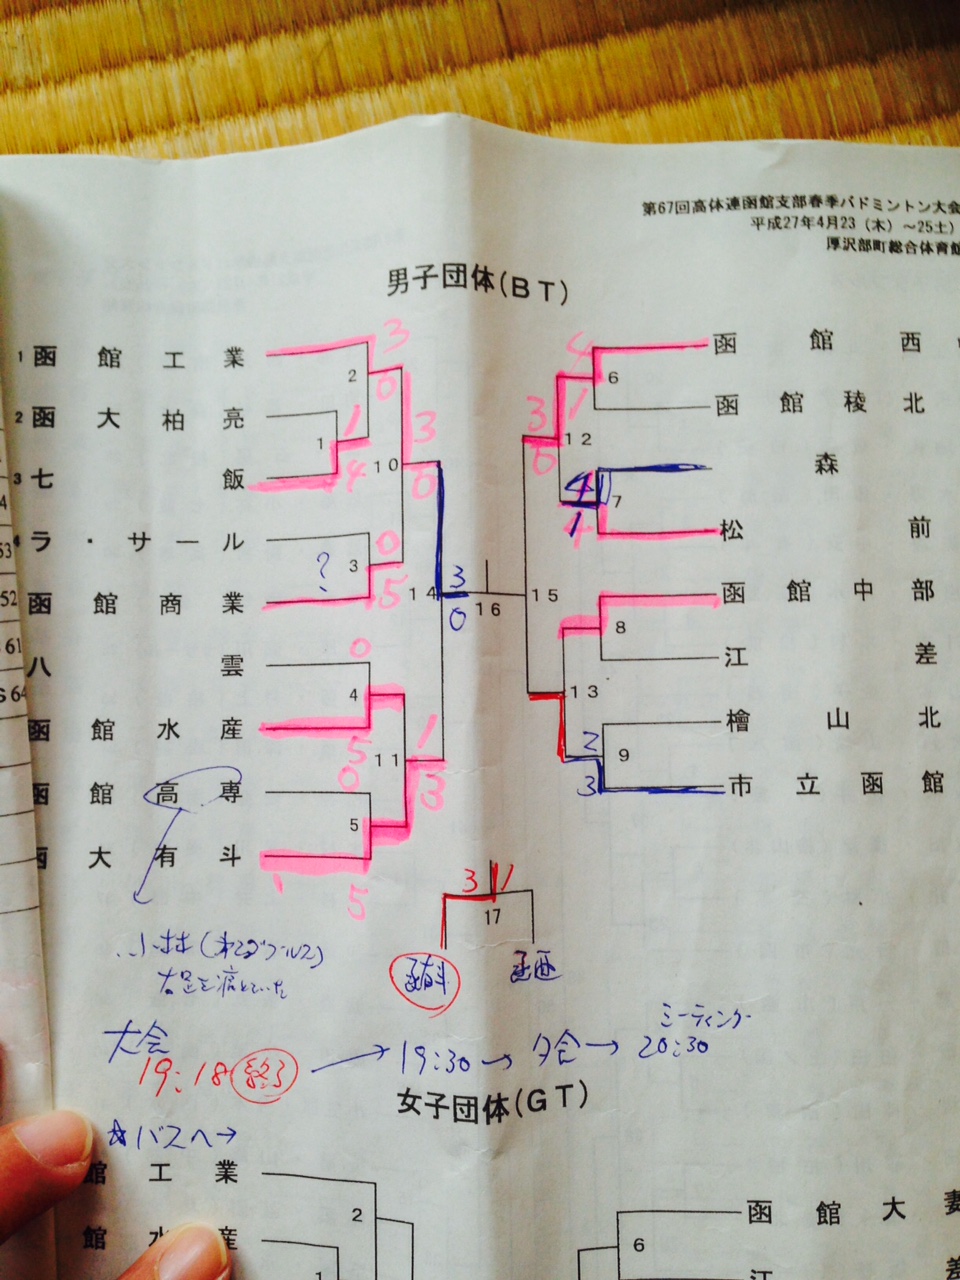 第67回高体連函館支部春季バドミントン大会
平成27年4月23(木)~25土)
厚沢部町総合体育館
男子団体(BT)
1 函館工業
2 函大柏亮
3 七飯
4 ラ・サール
函館商業
八雲
函館水産
函館高専
函大有斗
函館西
函館稜北
森
松前
函館中部
江差
檜山北
市立函館
2
1
10
3
14
4
11
5
16
15
6
12
7
8
13
9
17
3
0
1
4
3
0
0
5
?
0
5
0
5
1
3
3
0
4
1
3
0
4
1
2
3
3 1
函有斗
函西
53
52
61
64
小林
右足を
大会
19:18 終了 → 19:30 → 夕会 → 20:30
ミーティング
☆バスへ→
女子団体(GT)
館工業
館水産
2
1
函館大妻
6
江差